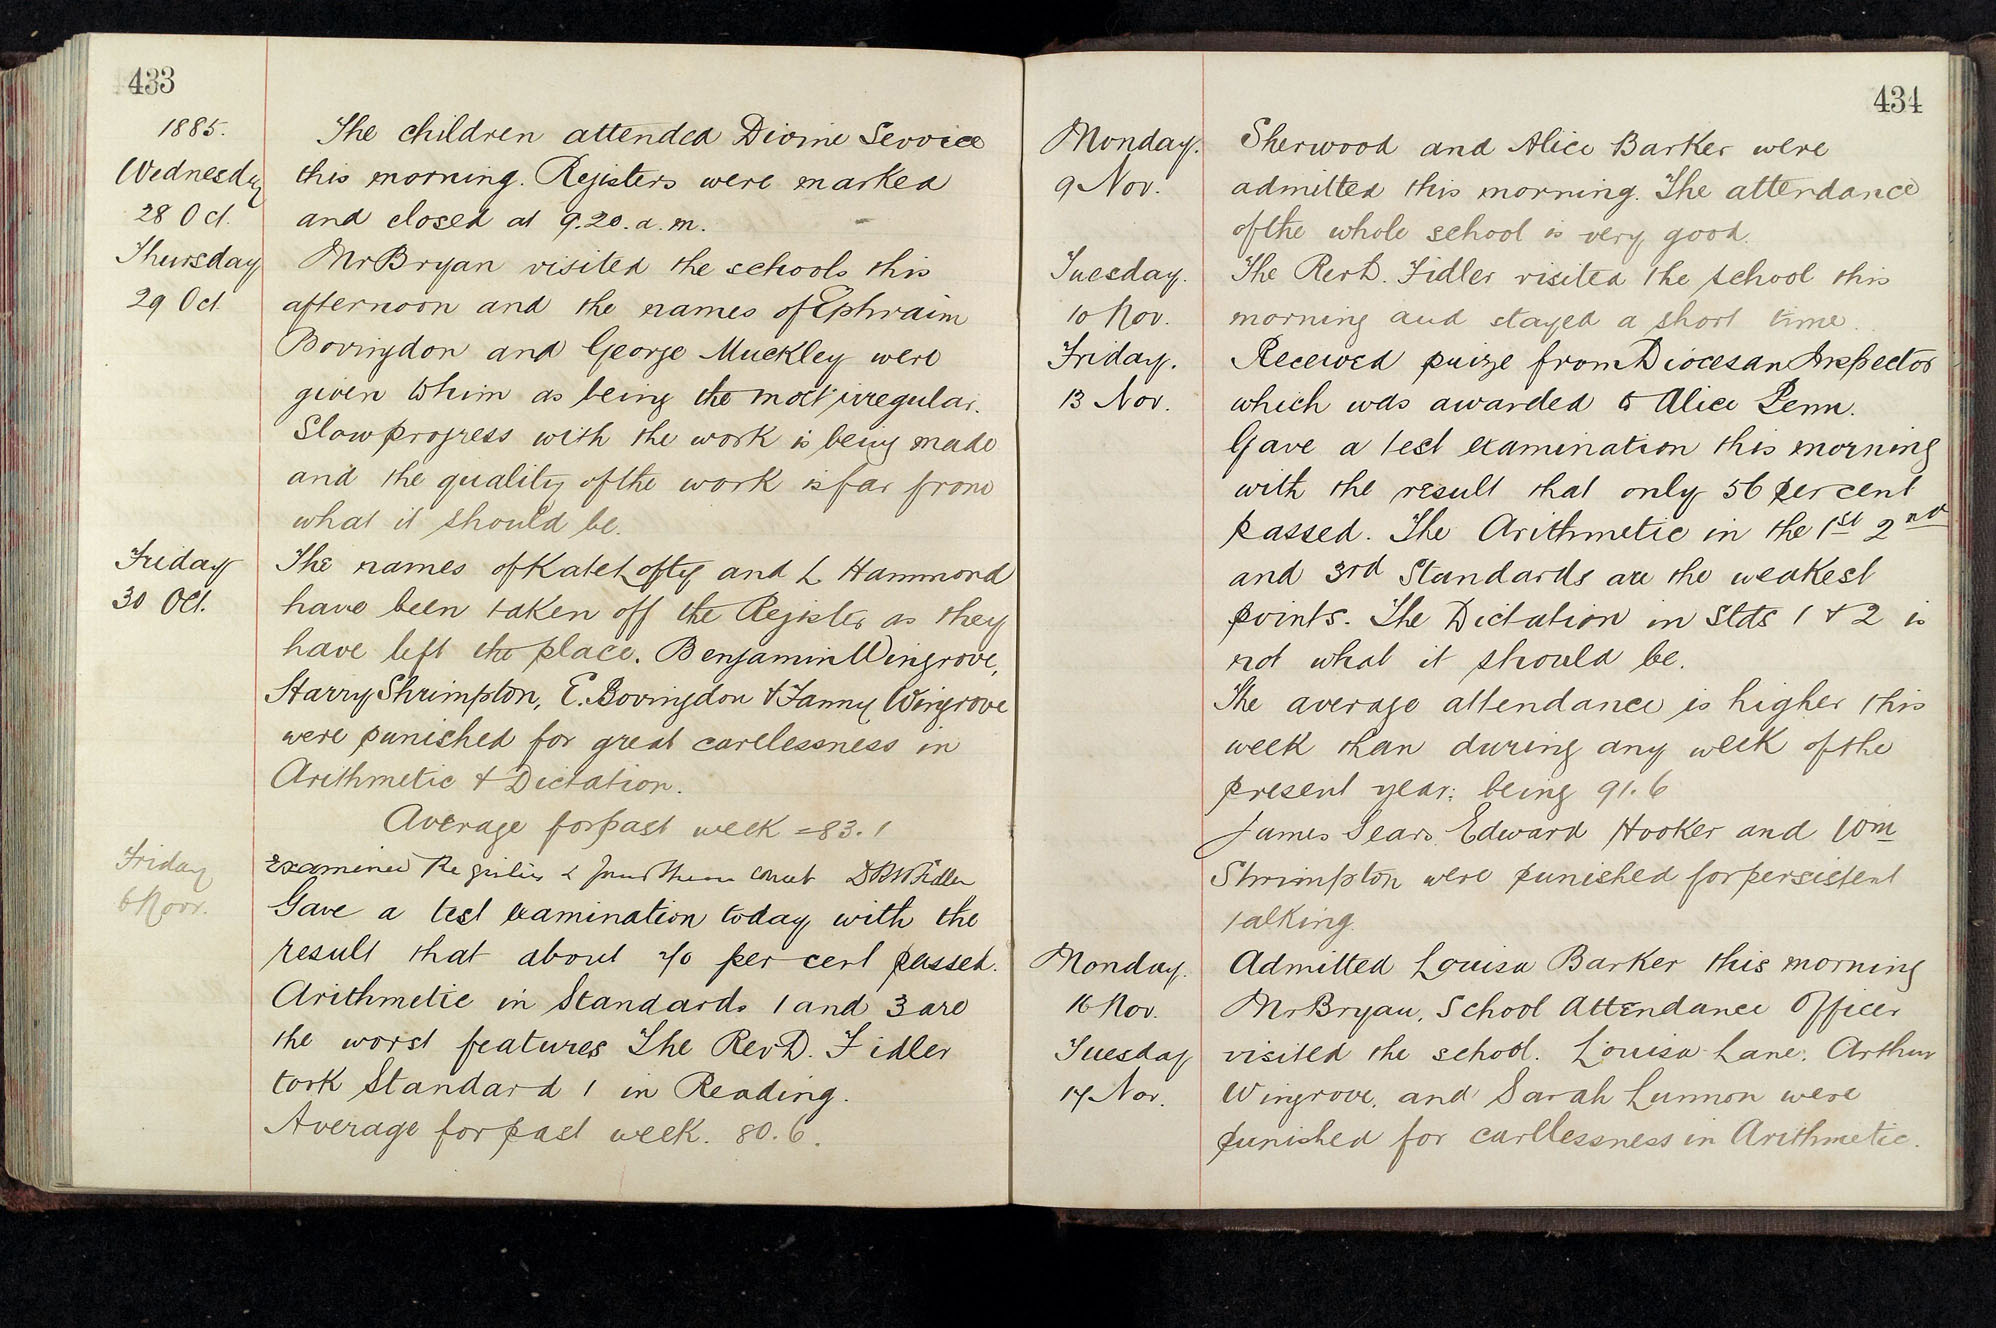 433
1885.
The children attended Divine Service
Wednesday
this morning. Registers were marked
28 Oct.
and closed at 9.20. a.m.
Thursday
Mr Bryan visited the schools this
29 Oct
afternoon and the names of Ephraim
Bovingdon and George Muckley were
given to him as being the most irregular.
Slow progress with the work is being made
and the quality of the work is far from
what it should be.
Friday
The names of Kate Lofty and L Hammond
30 Oct.
have been taken off the Register as they
have left the place. Benjamin Wingrove,
Harry Shrimpton, E. Bovingdon & Fanny Wingrove
were punished for great carelessness in
Arithmetic & Dictation.
Average for past week = 83.1
Friday
Examined the & found them correct D Fidler
6 Novr.
Gave a test examination today with the
result that about 70 per cent passed.
Arithmetic in Standards 1 and 3 are
the worst features The Rev D. Fidler
took Standard 1 in Reading.
Average for past week. 80.6.
434
Monday.
Sherwood and Alice Barker were
9 Nov.
admitted this morning. The attendance
of the whole school is very good.
Tuesday.
The Rev D. Fidler visited the school this
10 Nov.
morning and stayed a short time.
Friday.
Received prize from Diocesan Inspector
13 Nov.
which was awarded to Alice Penn.
Gave a test examination this morning
with the result that only 56 per cent
passed. The Arithmetic in the 1st 2nd
and 3rd Standards are the weakest
points. The Dictation in Stds 1 & 2 is
not what it should be.
The average attendance is higher this
week than during any week of the
present year: being 91.6
James Sears Edward Hooker and Wm
Shrimpton were punished for persistent
talking.
Monday.
Admitted Louisa Barker this morning
16 Nov.
Mr Bryan, School Attendance Officer
Tuesday
visited the school. Louisa Lane, Arthur
17 Nov.
Wingrove, and Sarah Lunnon were
punished for carelessness in Arithmetic.